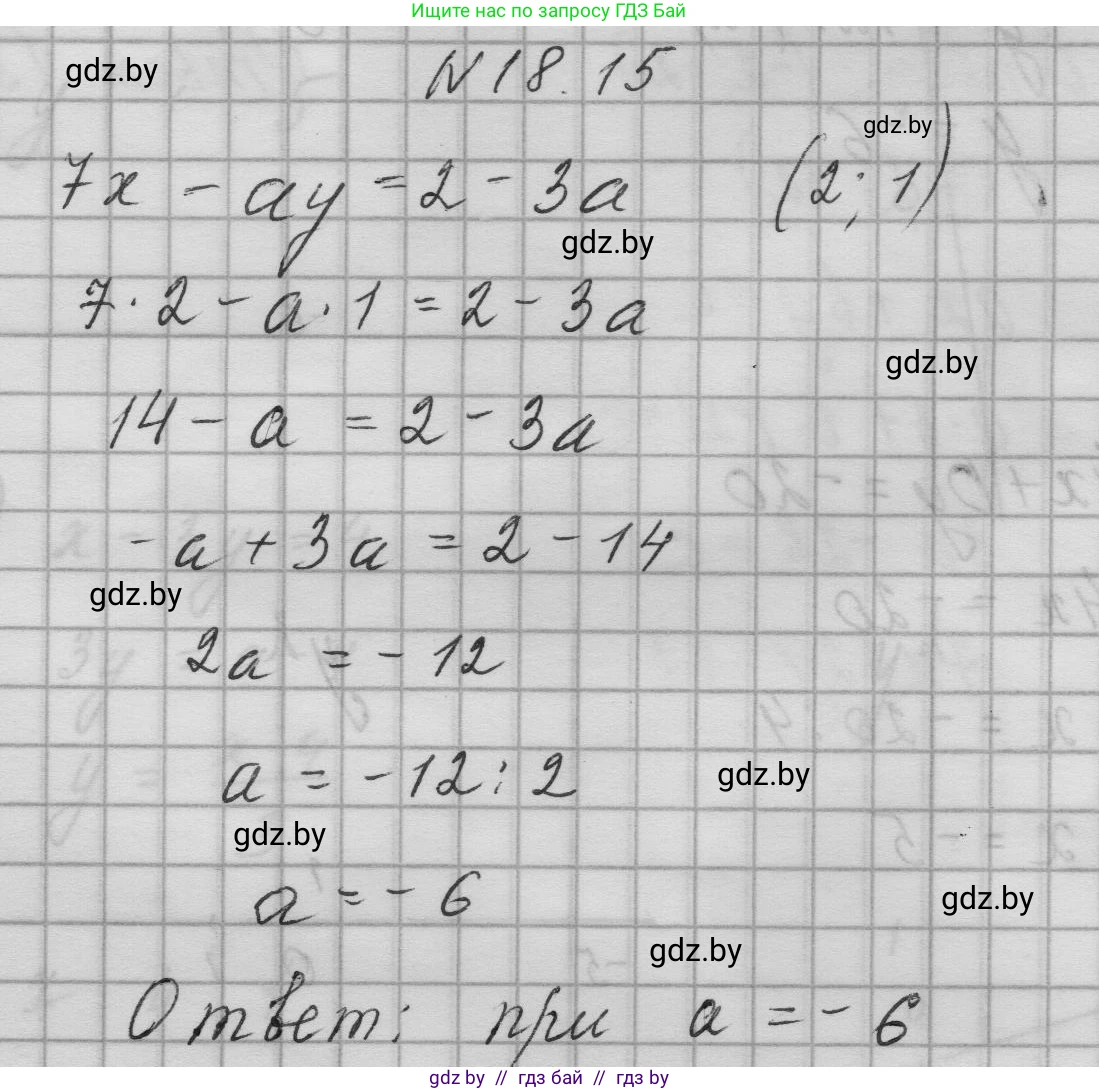 Ищите нас по запросу ГДЗ Бай
gdz.by
N 18.15
gdz.by
7x - ay = 2 - 3a (2; 1)
gdz.by
7 · 2 - a · 1 = 2 - 3a
gdz.by
14 - a = 2 - 3a
- a + 3a = 2 - 14
gdz.by
2a = - 12
a = - 12 : 2
gdz.by
gdz.by
a = - 6
gdz.by
gdz.by
Ответ: при a = - 6
gdz.by // гдз бай // гдз by